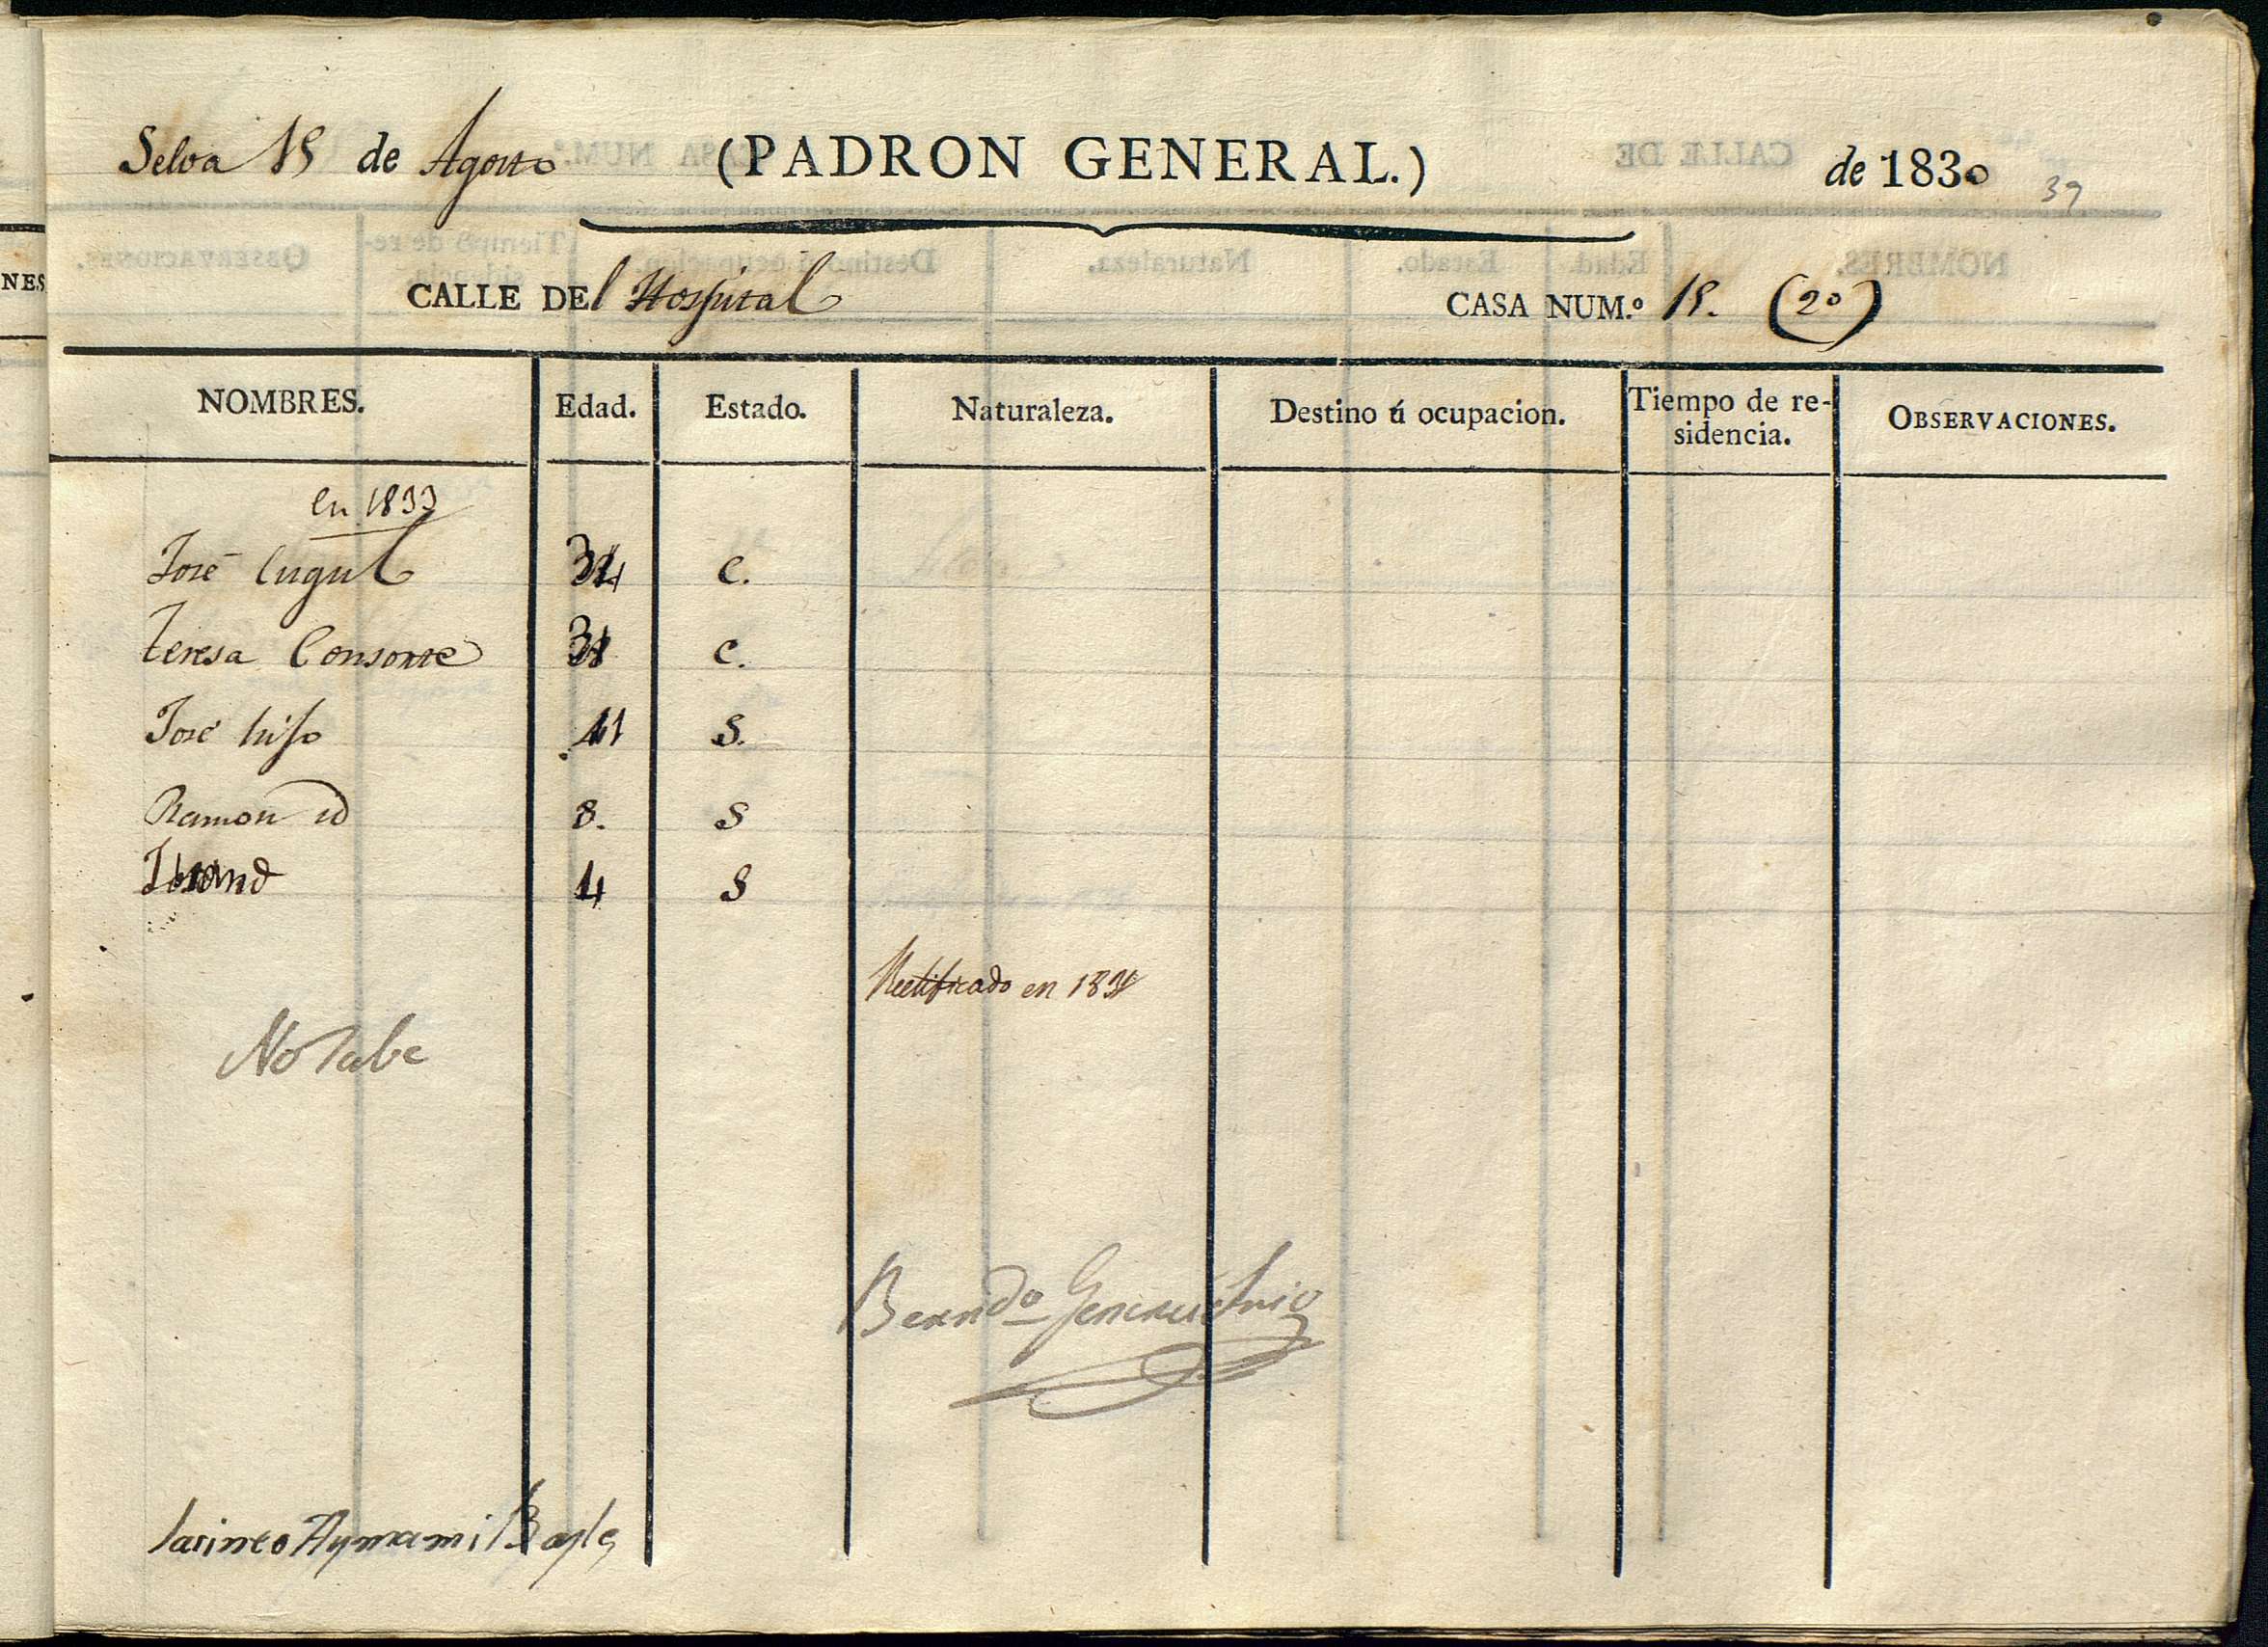 Selva 15 de Agosto (PADRON GENERAL.) de 1830 39
CALLE DEl Hospital CASA NUM.º 15. (20)
NOMBRES. Edad. Estado. Naturaleza. Destino ú ocupacion. Tiempo de re-sidencia. OBSERVACIONES.
en 1833
José Cugul 34 C.
Teresa Consorte C.
José hijo 11 S.
Ramon id 8. S
4 S
Rectificado en
No Sabe
Berndo
Jacinto Aymami Bayle
NES